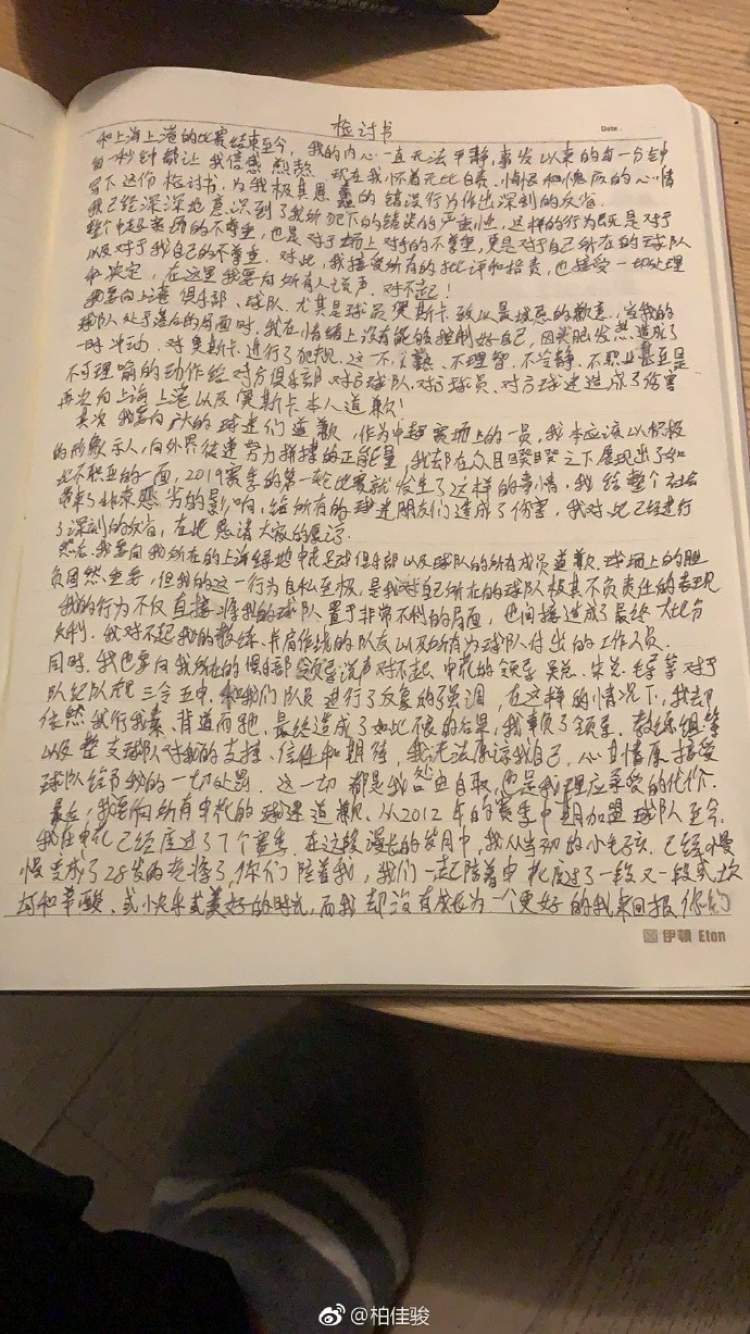 检讨书
Date
和上海上港的比赛结束至今，我的内心一直无法平静，事发以来的每一分钟
每一秒钟都让我倍感煎熬。现在我怀着无比自责、悔恨和愧疚的心情
写下这份检讨书，为我极其愚蠢的错误行为作出深刻的反省。
我已经深深地意识到了我所犯下的错误的严重性，这样的行为既是对于
整个中超联赛的不尊重，也是对于场上对手的不尊重，更是对于自己所在的球队
以及对于我自己的不尊重。对此，我接受所有的批评和指责，也接受一切处理
和决定，在这里我要向所有人说声，对不起！
我要向上港俱乐部、球队，尤其是球员奥斯卡致以最诚恳的歉意，当我的
球队处于落后的局面时，我在情绪上没有能够控制好自己，因头脑发热造成了
一时冲动，对奥斯卡进行了犯规。这一不、不理智、不冷静、不职业甚至是
不可理喻的动作给对方俱乐部、对方球队、对方球员、对方球迷造成了伤害
再次向上海上港以及奥斯卡本人道歉！
其次，我要向广大的球迷们道歉，作为中超赛场上的一员，我本应该以积极
的形象示人，向外界传递努力拼搏的正能量，我却在众目睽睽之下展现出了如
此不职业的一面，2019赛季的第一轮比赛就发生了这样的事情，我给整个社会
带来了非常恶劣的影响，给所有的球迷朋友们造成了伤害，我对此已经进行
了深刻的反省，在此恳请大家的原谅。
然后，我要向我所在的上海绿地申花足球俱乐部以及球队的所有成员道歉。球场上的胜
负固然重要，但我的这一行为自私至极，是我对自己所在的球队极其不负责任的表现
我的行为不仅直接将我的球队置于非常不利的局面，也间接造成了最终大比分
失利。我对不起我的教练、并肩作战的队友以及所有为球队付出的工作人员。
同时，我也要向我所在的俱乐部领导说声对不起，申花的领导吴总、朱总、毛导等对于
队纪队规三令五申，和我们队员进行了反复的强调，在这样的情况下，我却
依然我行我素、背道而驰，最终造成了如此不良的后果，我辜负了领导、教练组等
以及整支球队对我的支持、信任和期望，我无法原谅我自己，心甘情愿接受
球队给予我的一切处罚。这一切都是我咎由自取，也是我理应承受的代价。
最后，我要向所有申花的球迷道歉，从2012年的赛季中期加盟球队至今，
我在申花已经度过了7个赛季，在这段漫长的岁月中，我从当初的小毛孩，已经慢
慢变成了28岁的老将了，你们陪着我，我们一起陪着申花度过了一段又一段或坎
坷和辛酸、或快乐或美好的时光，而我却没有成长为一个更好的我来回报你们
伊顿 Eton
@柏佳骏